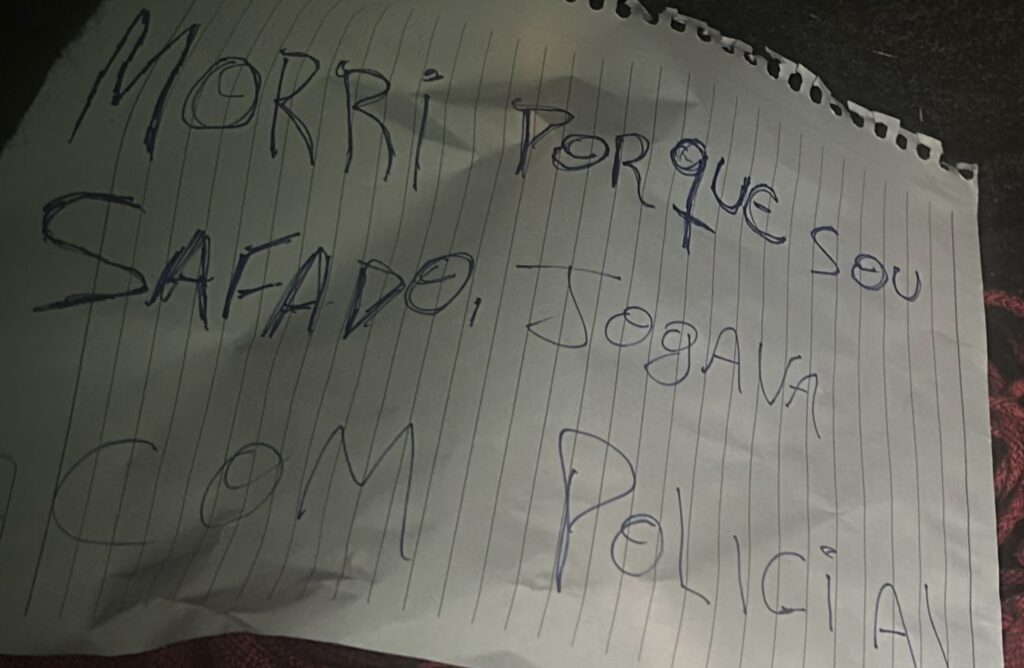 MORRi PORQUE SOU
SAFADO, JOGAVA
COM POLICiAL